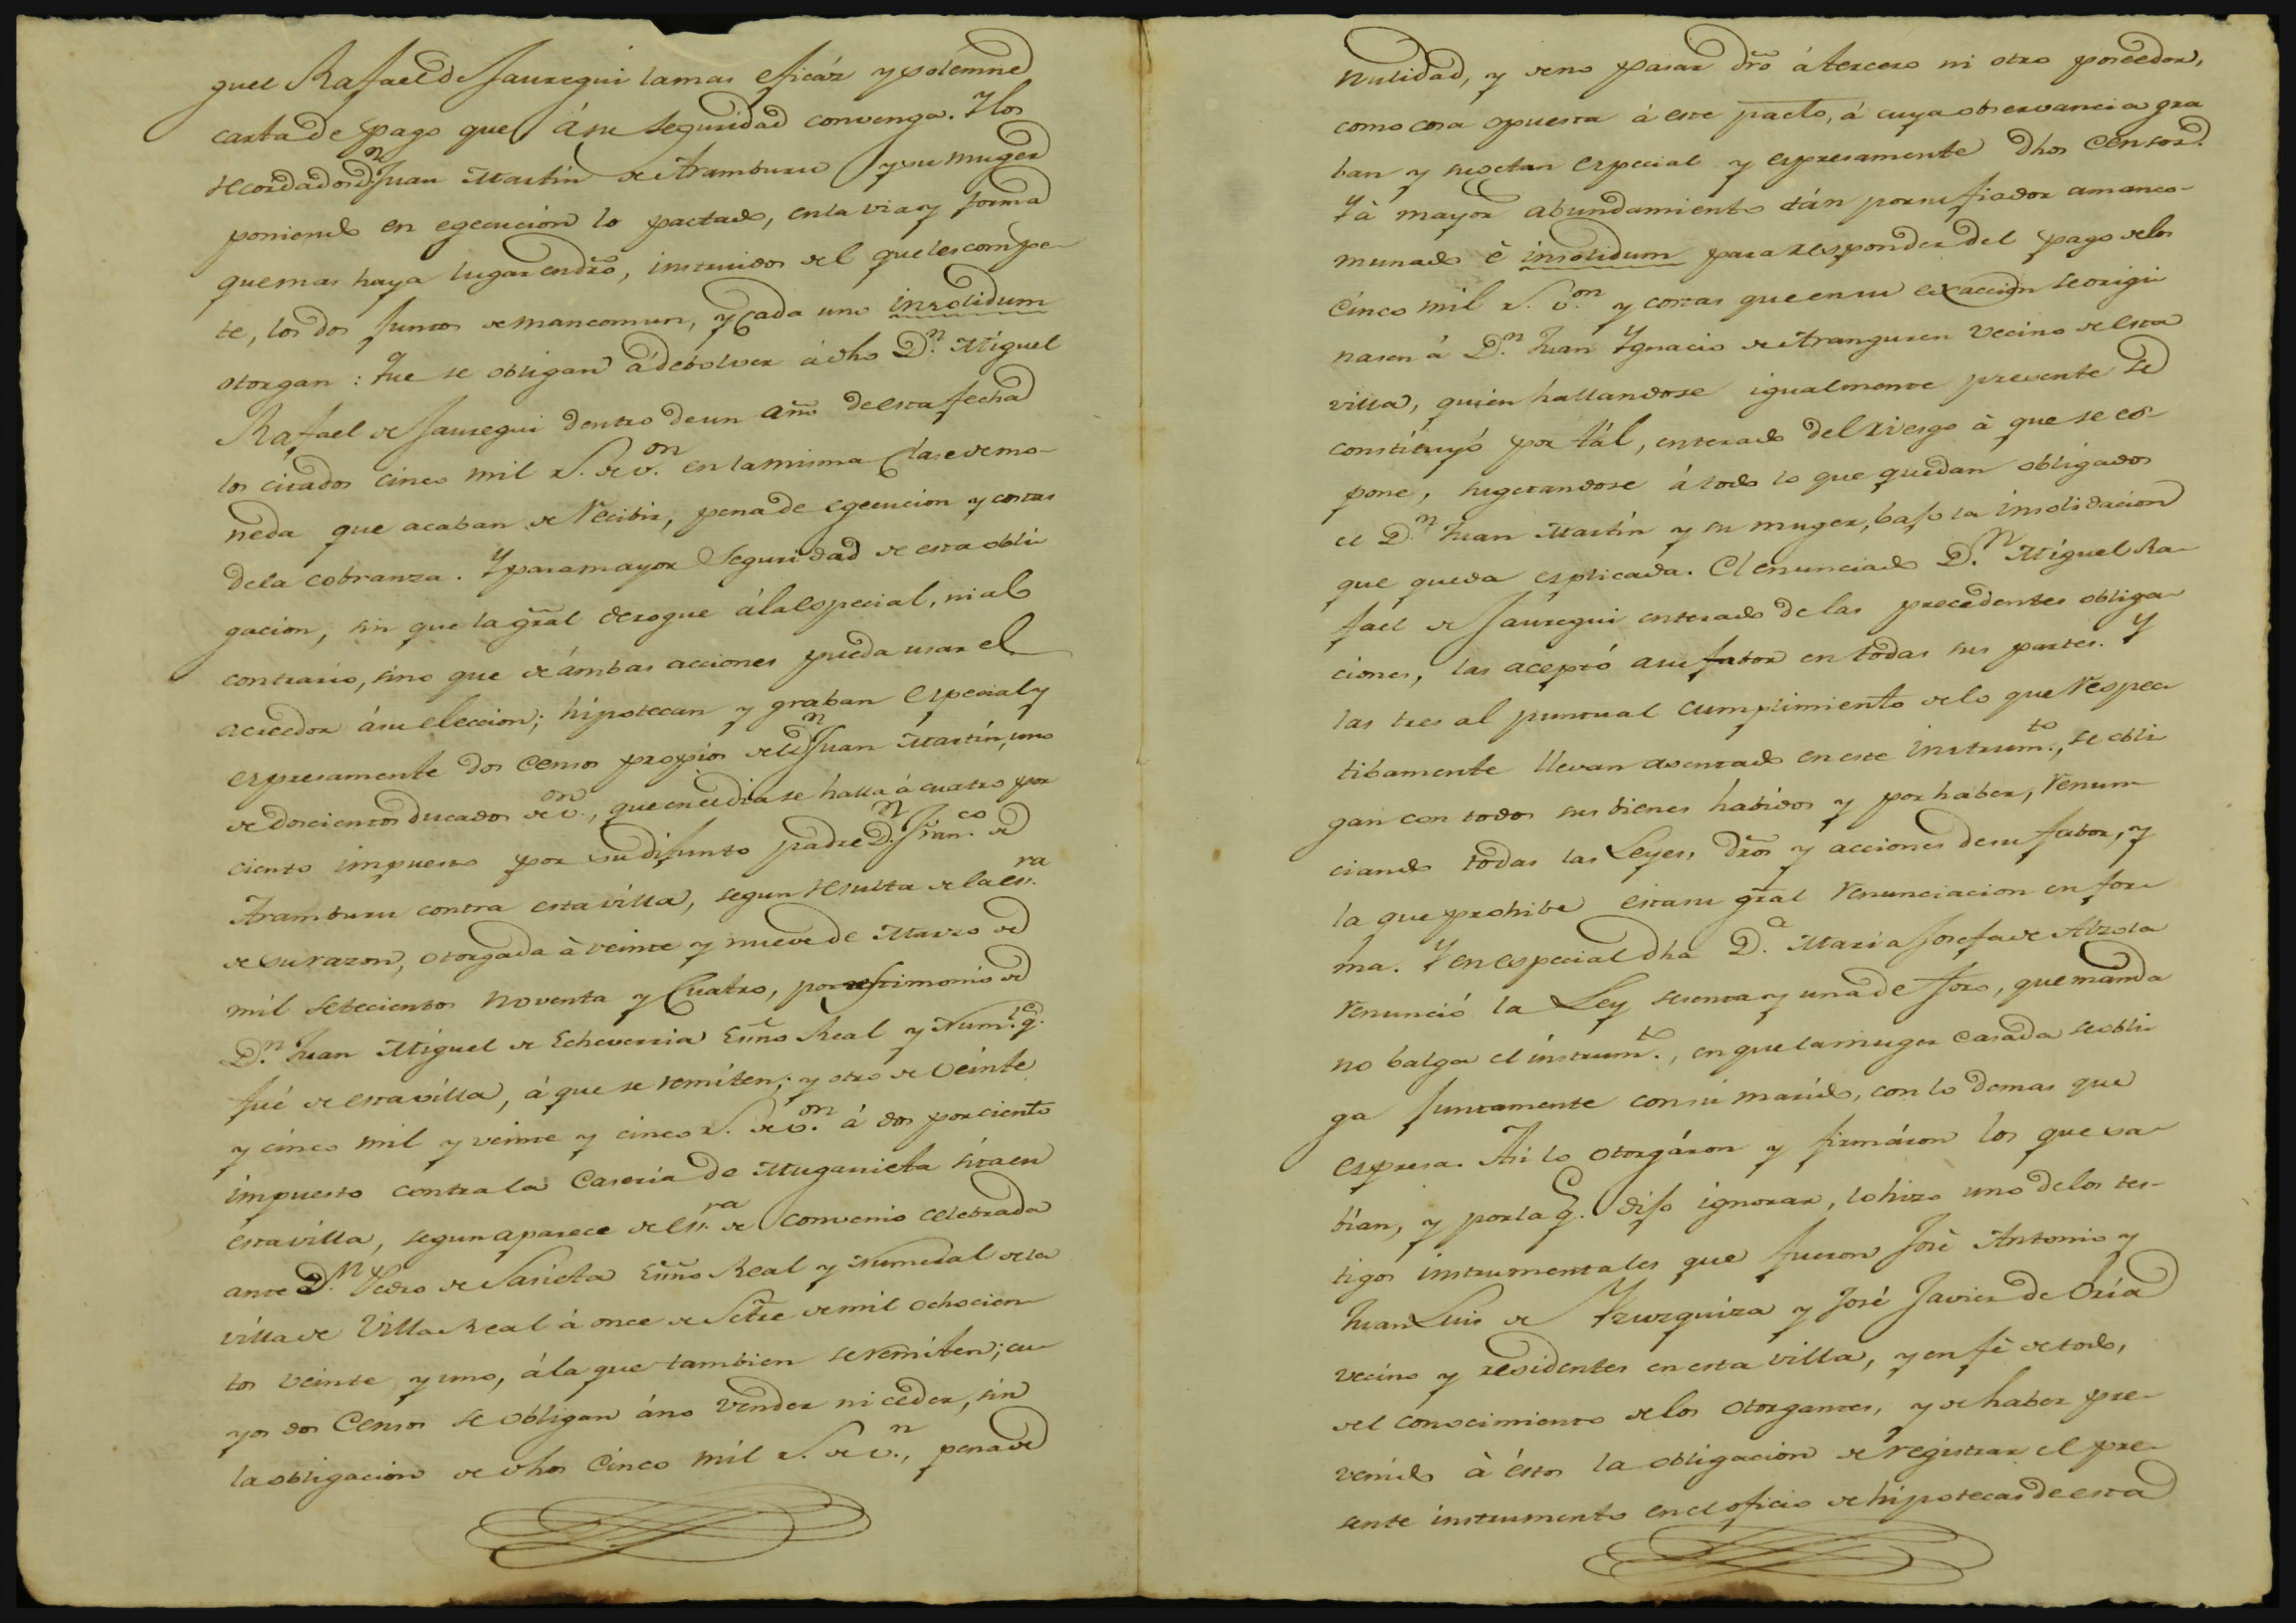 guel Rafael de Jauregui la mas eficáz y solemne
carta de pago que á su seguridad convenga. Y los
recordados D.n Juan Martin de Aramburu y su muger
poniendo en egecucion lo pactado, en la via y forma
que mas haya lugar en dro, instruidos del que les compe-
te, los dos juntos de mancomun, y cada uno insolidum
otorgan: Que se obligan á debolver á dho D.n Miguel
Rafael de Jauregui dentro de un año de esta fecha
los citados cinco mil r.s de v.on en la misma clase de mo-
neda que acaban de recibir, pena de egecucion y costas
de la cobranza. Y para mayor seguridad de esta obli-
gacion, sin que la gral derogue á la especial, ni al
contrario, sino que de ámbas acciones pueda usar el
acreedor á su eleccion; hipotecan y graban especial y
espresamente dos censos propios del D.n Juan Martin, uno
de doscientos ducados de v.on, que en el dia se halla á cuatro por
ciento impuesto por su difunto padre D.n Fran.co de
Aramburu contra esta villa, segun resulta de la ess.ra
de su razon, otorgada à veinte y nueve de Marzo de
mil setecientos noventa y cuatro, por testimonio de
D.n Juan Miguel de Echeverria Essno Real y Num.l q.e
fué de esta villa, á que se remiten; y otro de veinte
y cinco mil y veinte y cinco r.s de v.on á dos por ciento
impuesto contra la Caseria de Muganieta sita en
esta villa, segun aparece de ess.ra de convenio celebrada
ante D.n Pedro de Sarieta Essno Real y Numeral de la
villa de Villa Real á once de Setre de mil ochocien-
tos veinte y uno, á la que tambien se remiten; cu-
yos dos Censos se obligan á no vender ni ceder, sin
la obligacion de dhos cinco mil r.s de v.n, pena de
nulidad, y de no pasar dro á tercero ni otro poseedor,
como cosa opuesta á este pacto, á cuya observancia gra
ban y sugetan especial y espresamente dhos Censos.
Y à mayor abundamiento dán por su fiador amanco-
munado è insolidum para responder del pago de los
cinco mil r.s v.on y costas que en su exaccion se origi-
nasen á D.n Juan Ygnacio de Aranguren vecino de esta
villa, quien hallandose igualmente presente se
constituyó por tál, enterado del riesgo à que se es-
pone, sugetandose á todo lo que quedan obligados
el D.n Juan Martin y su muger, bajo la insolidacion
que queda esplicada. El enunciado D.n Miguel Ra-
fael de Jauregui enterado de las precedentes obliga-
ciones, las aceptó a su fabor en todas sus partes. Y
las tres al puntual cumplimiento de lo que respec-
tibamente llevan asentado en este instrum.to, se obli-
gan con todos sus bienes habidos y por haber, renun-
ciando todas las Leyes, dros y acciones de su fabor, y
la que prohibe esta su gral renunciacion en for-
ma. Y en especial dha D.a Maria Josefa de Alzola
renunció la Ley sesenta y una de Toro, que manda
no balga el instrum.to, en que la muger casada se obli-
ga juntamente con su marido, con lo demas que
espresa. Asi lo otorgáron y firmáron los que sa-
bian, y por la q.e dijo ignorar, lo hizo uno de los tes-
tigos instrumentales que fueron José Antonio y
Juan Luis de Yzurquiza y José Javier de Oria
vecino y residentes en esta villa, y en fè de todo,
del conocimiento de los otorgantes, y de haber pre-
venido à éstos la obligacion de registrar el pre-
sente instrumento en el oficio de hipotecas de esta